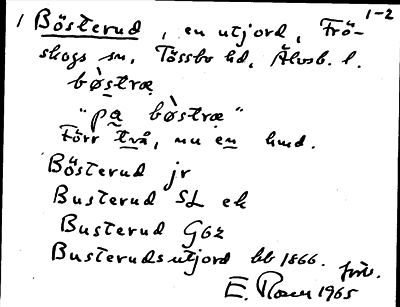 1-2
1 Bösterud, en utjord, Frö-
skogs sn, Tössbo hd, Älvsb. l.
bø̀stræ
"pa bø̀stræ"
Förr två, nu en hmd.
Bösterud jr
Busterud SL ek
Busterud Goz
Busterudsutjord bb 1866. förv.
E. 1965